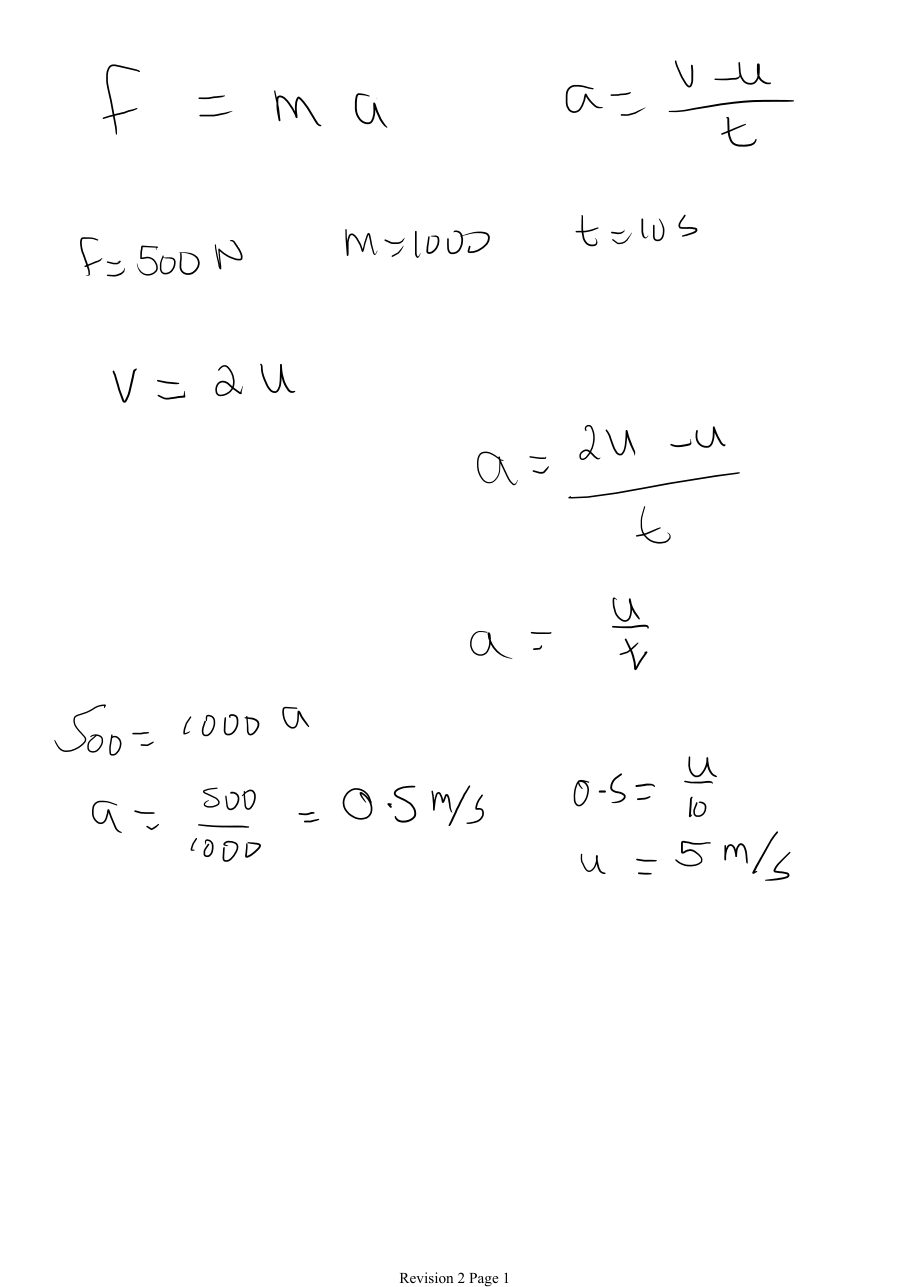 F = ma a = (v - u)/t
F = 500 N m = 1000 t = 10 s
v = 2u
a = (2u - u)/t
a = u/t
500 = 1000 a
a = 500/1000 = 0.5 m/s 0.5 = u/10
u = 5 m/s
Revision 2 Page 1